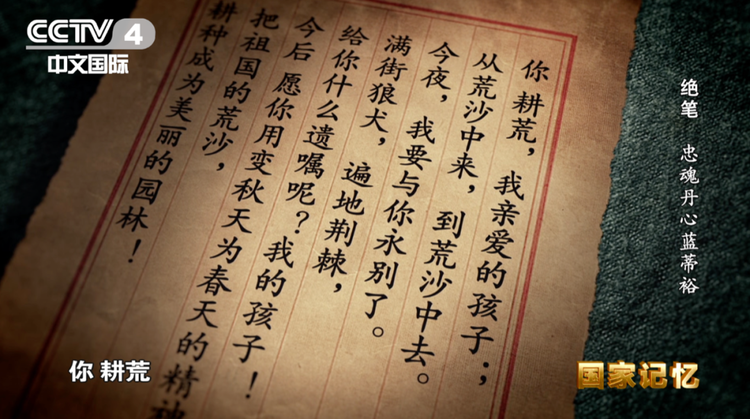 CCTV 4
中文国际
你 耕荒，我亲爱的孩子；
从荒沙中来，到荒沙中去。
今夜，我要与你永别了。
满街狼犬，遍地荆棘，
给你什么遗嘱呢？我的孩子！
今后 愿你用变秋天为春天的精神
把祖国的荒沙，
耕种成为美丽的园林！
绝笔 忠魂丹心蓝蒂裕
你 耕荒
国家记忆